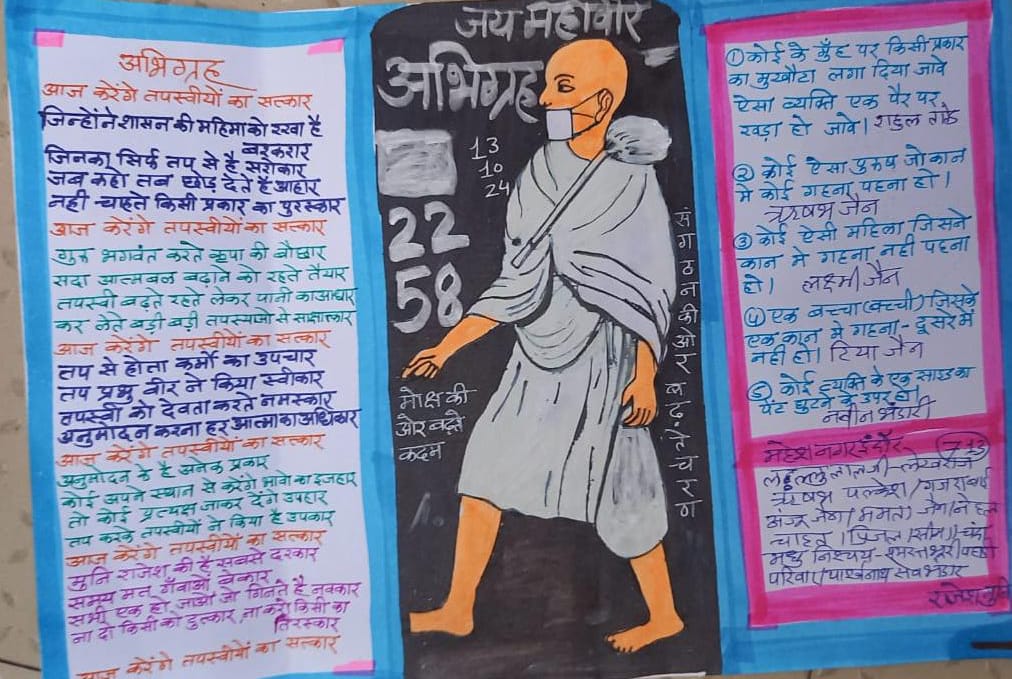 अभिग्रह
आज करेंगे तपस्वीयों का सत्कार
जिन्होंने शासन की महिमा को रखा है
बरकरार
जिनका सिर्फ तप से है सरोकार
जब कहो तब छोड़ देते है आहार
नही चाहते किसी प्रकार का पुरस्कार
आज करेंगे तपस्वीयों का सत्कार
गुरु भगवंत करते कृपा की बौछार
सदा आत्मबल बढ़ाने को रहते तैयार
तपस्वी बढ़ते रहते लेकर पानी का आधार
कर लेते बड़ी बड़ी तपस्याओ से साक्षात्कार
आज करेंगे तपस्वीयों का सत्कार
तप से होता कर्मो का उपचार
तप प्रभु वीर ने किया स्वीकार
तपस्वी को देवता करते नमस्कार
अनुमोदन करना हर आत्मा का अधिकार
आज करेंगे तपस्वीयों का सत्कार
अनुमोदन के है अनेक प्रकार
कोई अपने स्थान से करेंगे भावो का इजहार
तो कोई प्रत्यक्ष जाकर देंगे उपहार
तप करके तपस्वीयों ने किया है उपकार
आज करेंगे तपस्वीयों का सत्कार
मुनि राजेश की है सबसे दरकार
समय मत गँवाओ बेकार
सभी एक हो जाओ जो गिनते है नवकार
ना दो किसी को दुत्कार ना करो किसी का
तिरस्कार
आज करेंगे तपस्वीयों का सत्कार
जय महावीर
अभिग्रह
13
10
24
22
58
मोक्ष की
ओर बढ़ते
कदम
संगठन की ओर बढ़ते चरण
① कोई के मुँह पर किसी प्रकार
का मुखौटा लगा दिया जावे
ऐसा व्यक्ति एक पैर पर
खड़ा हो जावे। राहुल
② कोई ऐसा पुरुष जो कान
मे कोई गहना पहना हो।
ऋषभ जैन
③ कोई ऐसी महिला जिसने
कान मे गहना नही पहना
हो। लक्ष्मी जैन
④ एक बच्चा (बच्ची) जिसके
एक कान मे गहना - दुसरे में
नही हो। टिया जैन
⑤ कोई व्यक्ति के एक साइड का
पेंट घुटने के उपर हो।
नवीन भंडारी
महेश नगर इंदौर 7-13
ऋषभ पलकेश / गजराबाई
अंजू जैन / ममता जैन / नेहल
चाहत /
मधु निश्चय -
परिवार / पार्श्वनाथ
राजेश मुनि